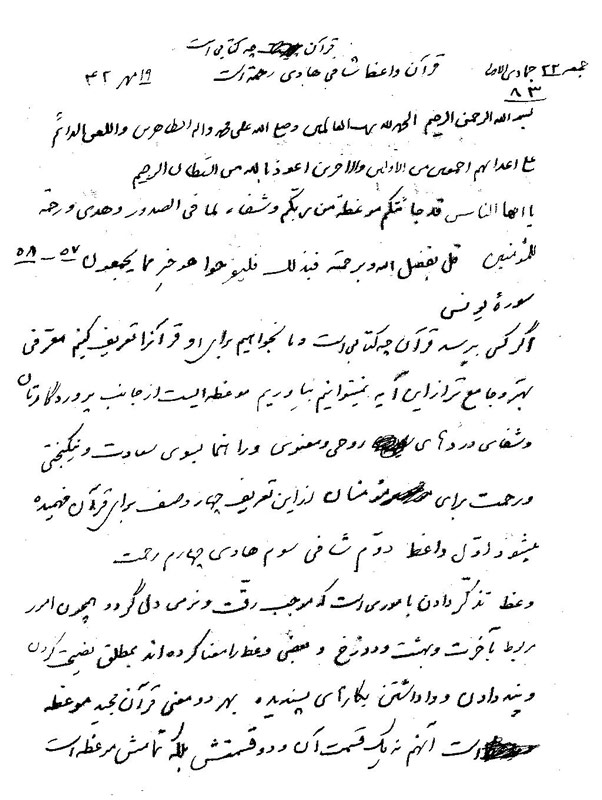 قرآن چه کتابی است
قرآن واعظ شافی هادی رحمة است
جمعه ۲۲ جمادی الاولی ۸۳
۱۹ مهر ۴۲
بسم الله الرحمن الرحیم الحمد لله رب العالمین وصلی الله علی محمد واله الطاهرین واللعن الدائم
علی اعدائهم اجمعین من الاولین والاخرین اعوذ بالله من الشیطان الرجیم
یا ایها الناس قد جائتکم موعظة من ربکم وشفاء لما فی الصدور وهدی ورحمة
للمؤمنین قل بفضل الله وبرحمته فبذلک فلیفرحوا هو خیر مما یجمعون ۵۷ - ۵۸
سورۀ یونس
اگر کسی بپرسد قرآن چه کتابی است و ما بخواهیم برای او قرآنرا تعریف کنیم معرفی
بهتر و جامع تر از این آیه نمیتوانیم بیاوریم موعظه ایست از جانب پروردگارتان
وشفای دردهای روحی ومعنوی وراهنما بسوی سعادت ونیکبختی
ورحمت برای مؤمنان از این تعریف چهار وصف برای قرآن فهمیده
میشود اول واعظ دوم شافی سوم هادی چهارم رحمت
وعظ تذکر دادن باموری است که موجب رقت ونرمی دل گردد همچون امور
مربوط بآخرت وبهشت ودوزخ و بعضی وعظ را معنا کرده اند بمطلق نصیحت کردن
وپند دادن وواداشتن بکارهای پسندیده بهر دو معنی قرآن مجید موعظه
است آنهم نه یک قسمت آن ودو قسمتش بلکه تمامش موعظه است